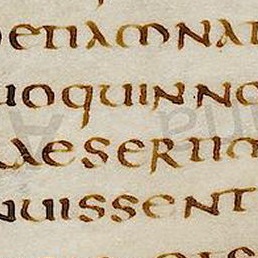 etiamnat
uoquinno
raeseriim
nuissent